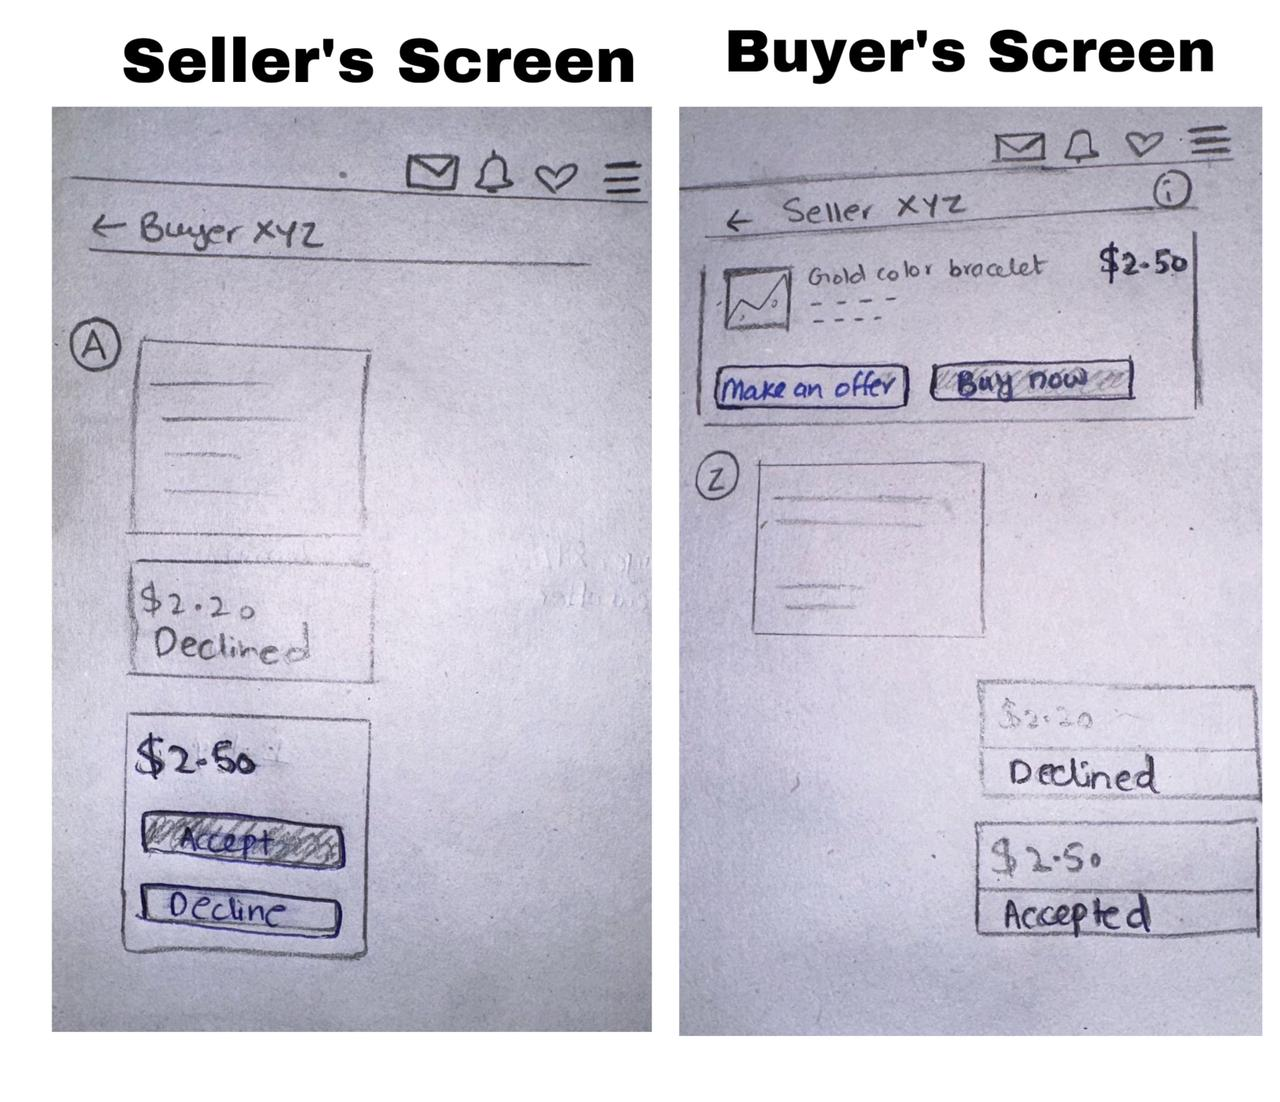 Seller's Screen
← Buyer XYZ
A
$2.20
Declined
$2.50
Accept
Decline
Buyer's Screen
← Seller XYZ
i
Gold color bracelet
$2.50
Make an offer
Buy now
Z
$2.20
Declined
$2.50
Accepted